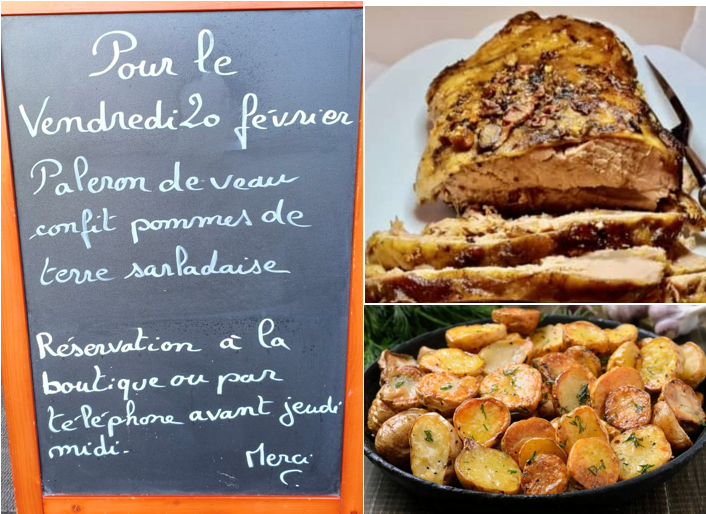 Pour le
Vendredi 20 février
Paleron de veau
confit pommes de
terre sarladaise
Réservation à la
boutique ou par
téléphone avant jeudi
midi.
Merci